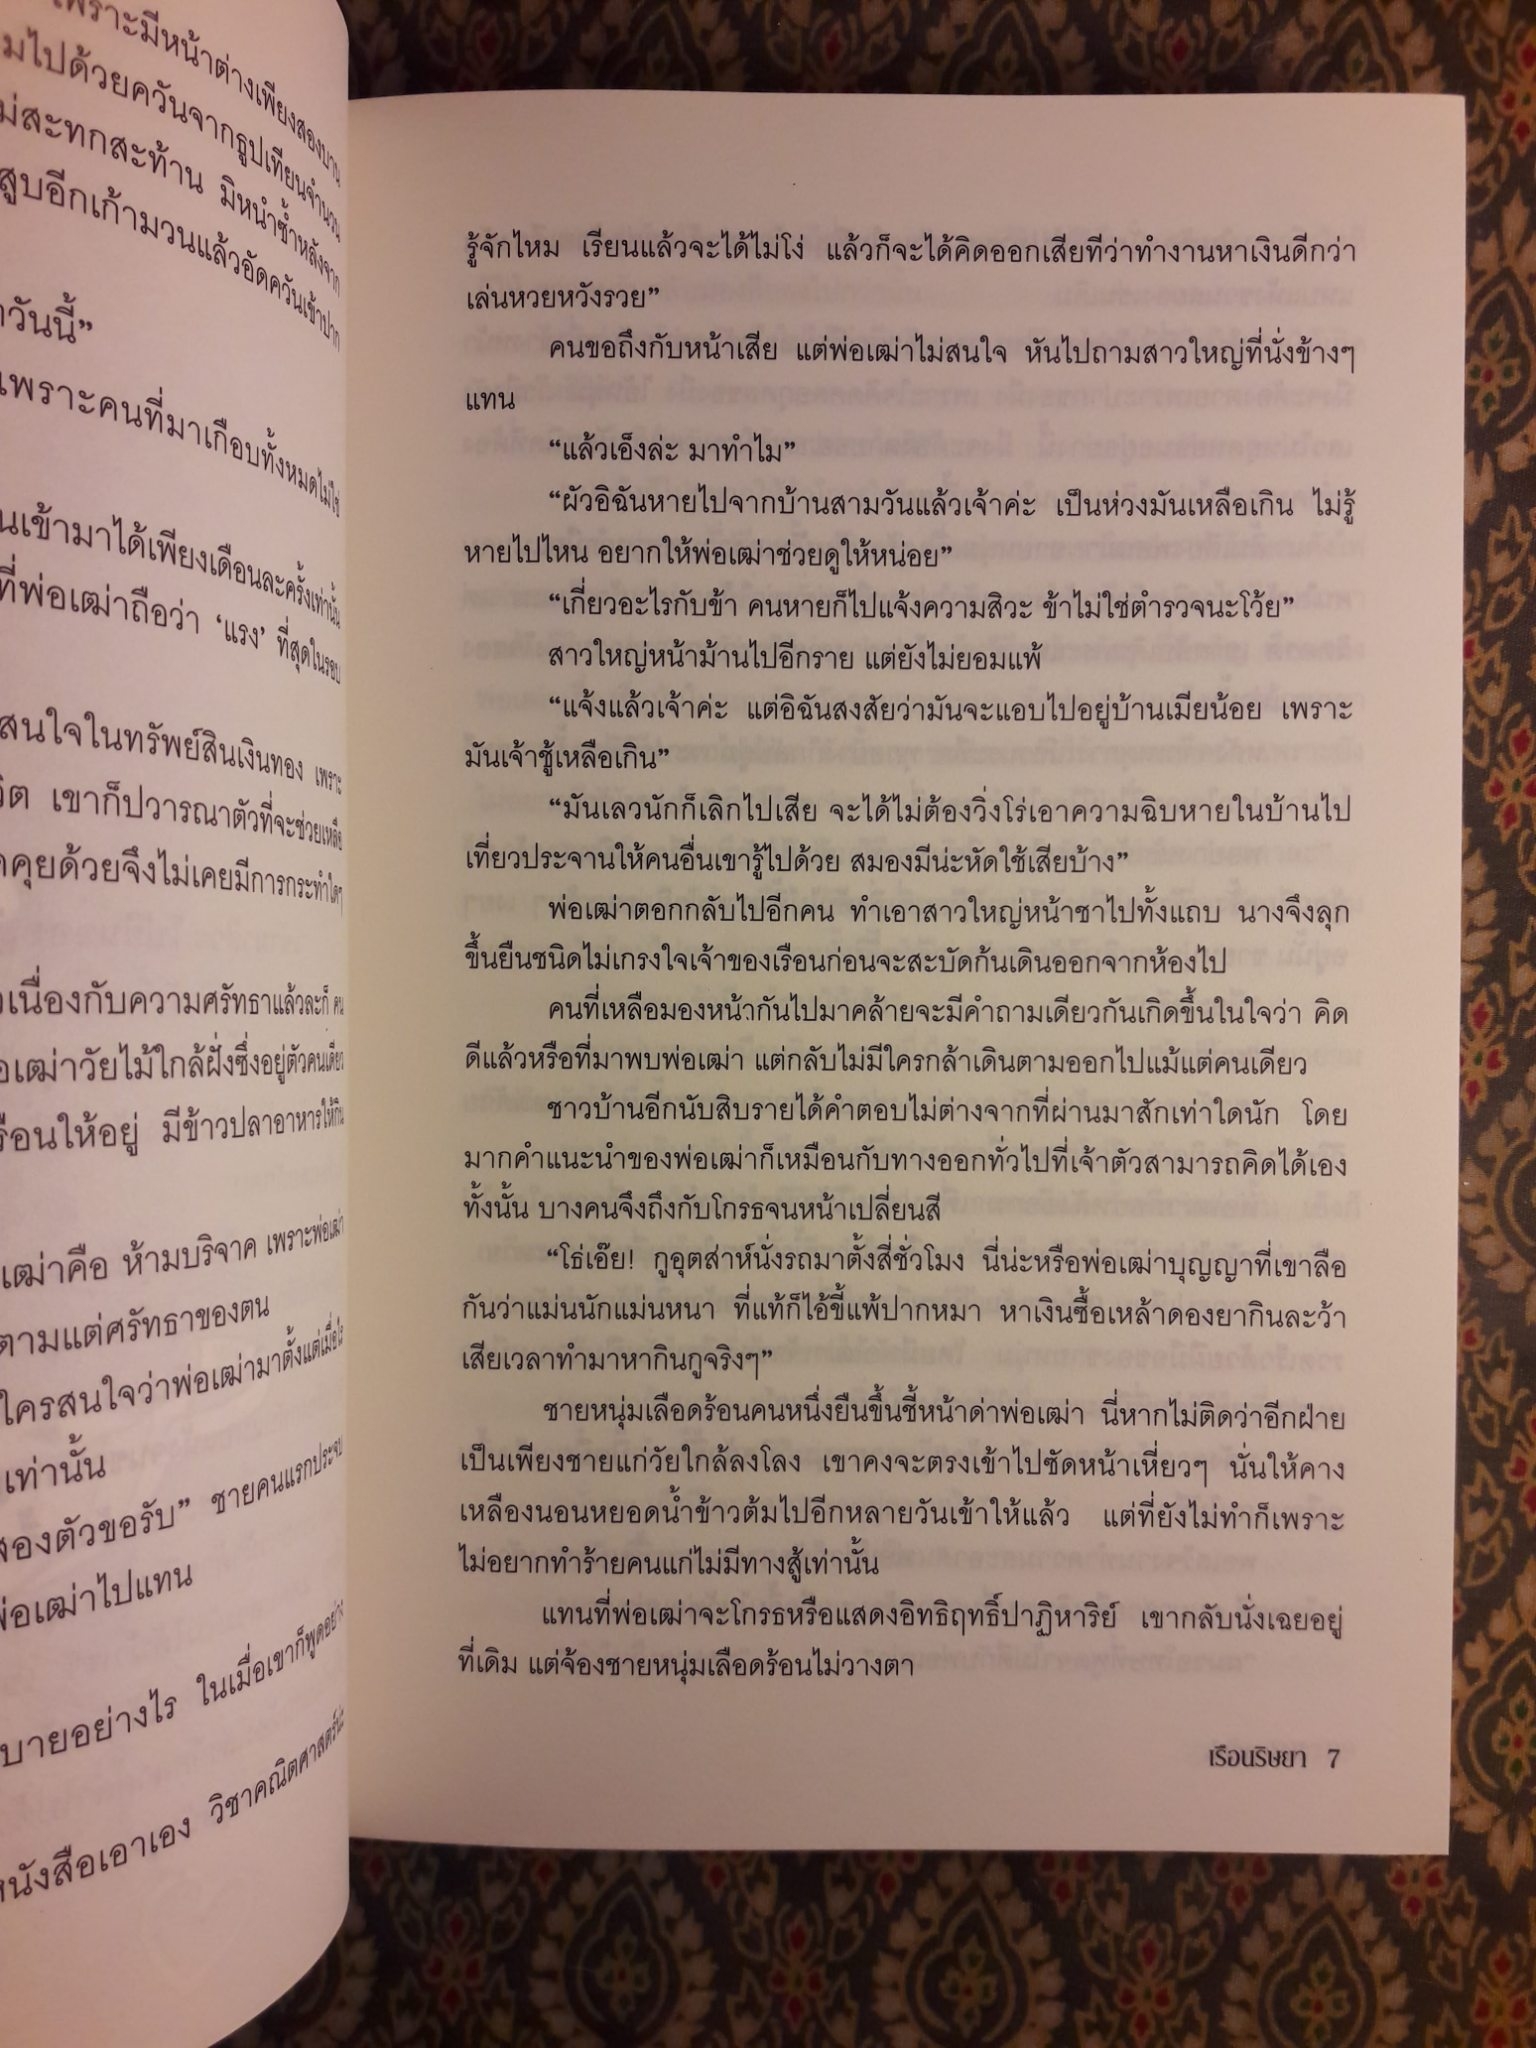 เพราะมีหน้าต่างเพียงสองบาน
มไปด้วยควันจากธูปเทียนจำนวน
ม่สะทกสะท้าน มิหนำซ้ำหลังจาก
สูบอีกเก้ามวนแล้วอัดควันเข้าปาก
าวันนี้”
เพราะคนที่มาเกือบทั้งหมดไม่ใช่
นเข้ามาได้เพียงเดือนละครั้งเท่านั้น
ที่พ่อเฒ่าถือว่า ‘แรง’ ที่สุดในรอบ
สนใจในทรัพย์สินเงินทอง เพราะ
วิต เขาก็ปวารณาตัวที่จะช่วยเหลือ
คุยด้วยจึงไม่เคยมีการกระทำใดๆ
เนื่องกับความศรัทธาแล้วละก็ คน
อเฒ่าวัยไม้ใกล้ฝั่งซึ่งอยู่ตัวคนเดียว
รือนให้อยู่ มีข้าวปลาอาหารให้กิน
เฒ่าคือ ห้ามบริจาค เพราะพ่อเฒ่า
ตามแต่ศรัทธาของตน
ใครสนใจว่าพ่อเฒ่ามาตั้งแต่เมื่อไร
เท่านั้น
สองตัวขอรับ” ชายคนแรกประจบ
พ่อเฒ่าไปแทน
บายอย่างไร ในเมื่อเขาก็พูดอย่าง
หนังสือเอาเอง วิชาคณิตศาสตร์น่ะ
รู้จักไหม เรียนแล้วจะได้ไม่โง่ แล้วก็จะได้คิดออกเสียทีว่าทำงานหาเงินดีกว่า
เล่นหวยหวังรวย”
คนขอถึงกับหน้าเสีย แต่พ่อเฒ่าไม่สนใจ หันไปถามสาวใหญ่ที่นั่งข้างๆ
แทน
“แล้วเอ็งล่ะ มาทำไม”
“ผัวอิฉันหายไปจากบ้านสามวันแล้วเจ้าค่ะ เป็นห่วงมันเหลือเกิน ไม่รู้
หายไปไหน อยากให้พ่อเฒ่าช่วยดูให้หน่อย”
“เกี่ยวอะไรกับข้า คนหายก็ไปแจ้งความสิวะ ข้าไม่ใช่ตำรวจนะโว้ย”
สาวใหญ่หน้าม้านไปอีกราย แต่ยังไม่ยอมแพ้
“แจ้งแล้วเจ้าค่ะ แต่อิฉันสงสัยว่ามันจะแอบไปอยู่บ้านเมียน้อย เพราะ
มันเจ้าชู้เหลือเกิน”
“มันเลวนักก็เลิกไปเสีย จะได้ไม่ต้องวิ่งโร่เอาความฉิบหายในบ้านไป
เที่ยวประจานให้คนอื่นเขารู้ไปด้วย สมองมีน่ะหัดใช้เสียบ้าง”
พ่อเฒ่าตอกกลับไปอีกคน ทำเอาสาวใหญ่หน้าชาไปทั้งแถบ นางจึงลุก
ขึ้นยืนชนิดไม่เกรงใจเจ้าของเรือนก่อนจะสะบัดก้นเดินออกจากห้องไป
คนที่เหลือมองหน้ากันไปมาคล้ายจะมีคำถามเดียวกันเกิดขึ้นในใจว่า คิด
ดีแล้วหรือที่มาพบพ่อเฒ่า แต่กลับไม่มีใครกล้าเดินตามออกไปแม้แต่คนเดียว
ชาวบ้านอีกนับสิบรายได้คำตอบไม่ต่างจากที่ผ่านมาสักเท่าใดนัก โดย
มากคำแนะนำของพ่อเฒ่าก็เหมือนกับทางออกทั่วไปที่เจ้าตัวสามารถคิดได้เอง
ทั้งนั้น บางคนจึงถึงกับโกรธจนหน้าเปลี่ยนสี
“โธ่เอ๊ย! กูอุตส่าห์นั่งรถมาตั้งสี่ชั่วโมง นี่น่ะหรือพ่อเฒ่าบุญญาที่เขาลือ
กันว่าแม่นนักแม่นหนา ที่แท้ก็ไอ้ขี้แพ้ปากหมา หาเงินซื้อเหล้าดองยากินละว้า
เสียเวลาทำมาหากินกูจริงๆ”
ชายหนุ่มเลือดร้อนคนหนึ่งยืนขึ้นชี้หน้าด่าพ่อเฒ่า นี่หากไม่ติดว่าอีกฝ่าย
เป็นเพียงชายแก่วัยใกล้ลงโลง เขาคงจะตรงเข้าไปซัดหน้าเหี่ยวๆ นั่นให้คาง
เหลืองนอนหยอดน้ำข้าวต้มไปอีกหลายวันเข้าให้แล้ว แต่ที่ยังไม่ทำก็เพราะ
ไม่อยากทำร้ายคนแก่ไม่มีทางสู้เท่านั้น
แทนที่พ่อเฒ่าจะโกรธหรือแสดงอิทธิฤทธิ์ปาฏิหาริย์ เขากลับนั่งเฉยอยู่
ที่เดิม แต่จ้องชายหนุ่มเลือดร้อนไม่วางตา
เรือนริษยา 7